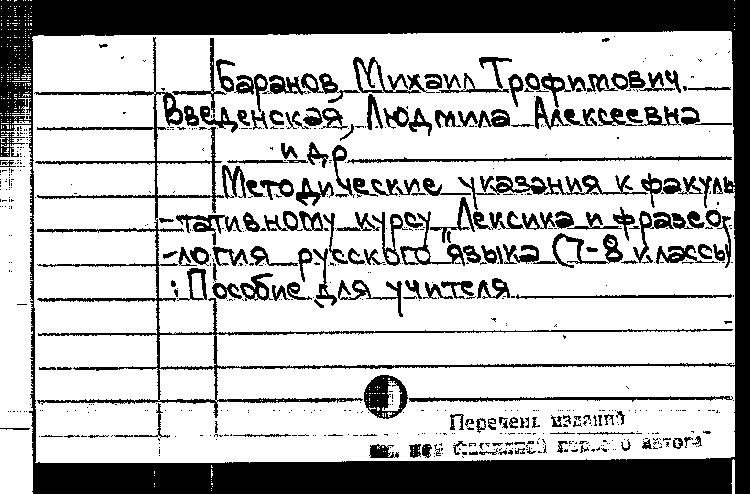 Баранов, Михаил Трофимович.
Введенская, Людмила Алексеевна
и др.
Методические указания к факуль
-тативному курсу Лексика и фразео-
-логия русского языка (7-8 классы)
: Пособие для учителя
Перечень изданий
первого автора